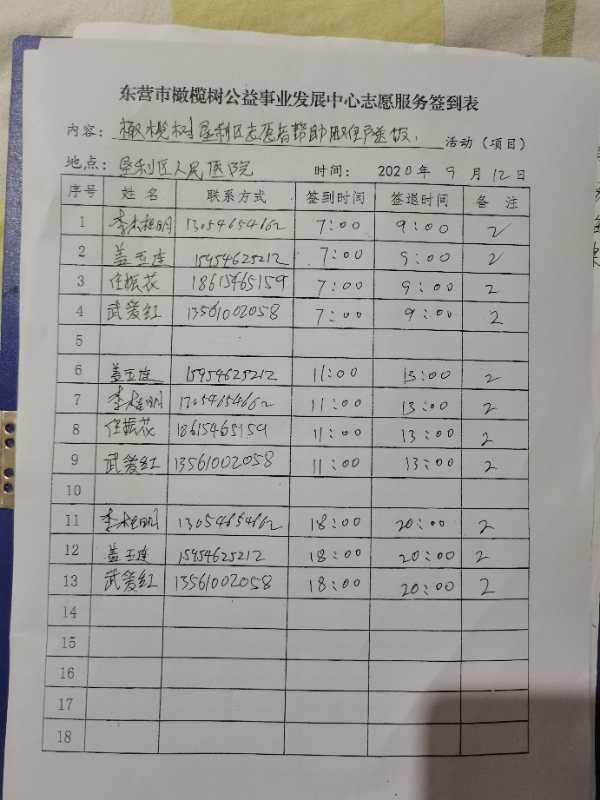 东营市橄榄树公益事业发展中心志愿服务签到表
内容: 橄榄树垦利区志愿者帮助 活动 (项目)
地点: 垦利区人民医院 时间: 2020 年 9 月 12 日
序号 姓名 联系方式 签到时间 签退时间 备注
1 李桂明 13054654662 7:00 9:00 2
2 盖玉连 15954625212 7:00 9:00 2
3 任振花 18615465159 7:00 9:00 2
4 武爱红 13561002058 7:00 9:00 2
5
6 盖玉连 15954625212 11:00 13:00 2
7 李桂明 13054654662 11:00 13:00 2
8 任振花 18615465159 11:00 13:00 2
9 武爱红 13561002058 11:00 13:00 2
10
11 李桂明 13054654662 18:00 20:00 2
12 盖玉连 15954625212 18:00 20:00 2
13 武爱红 13561002058 18:00 20:00 2
14
15
16
17
18